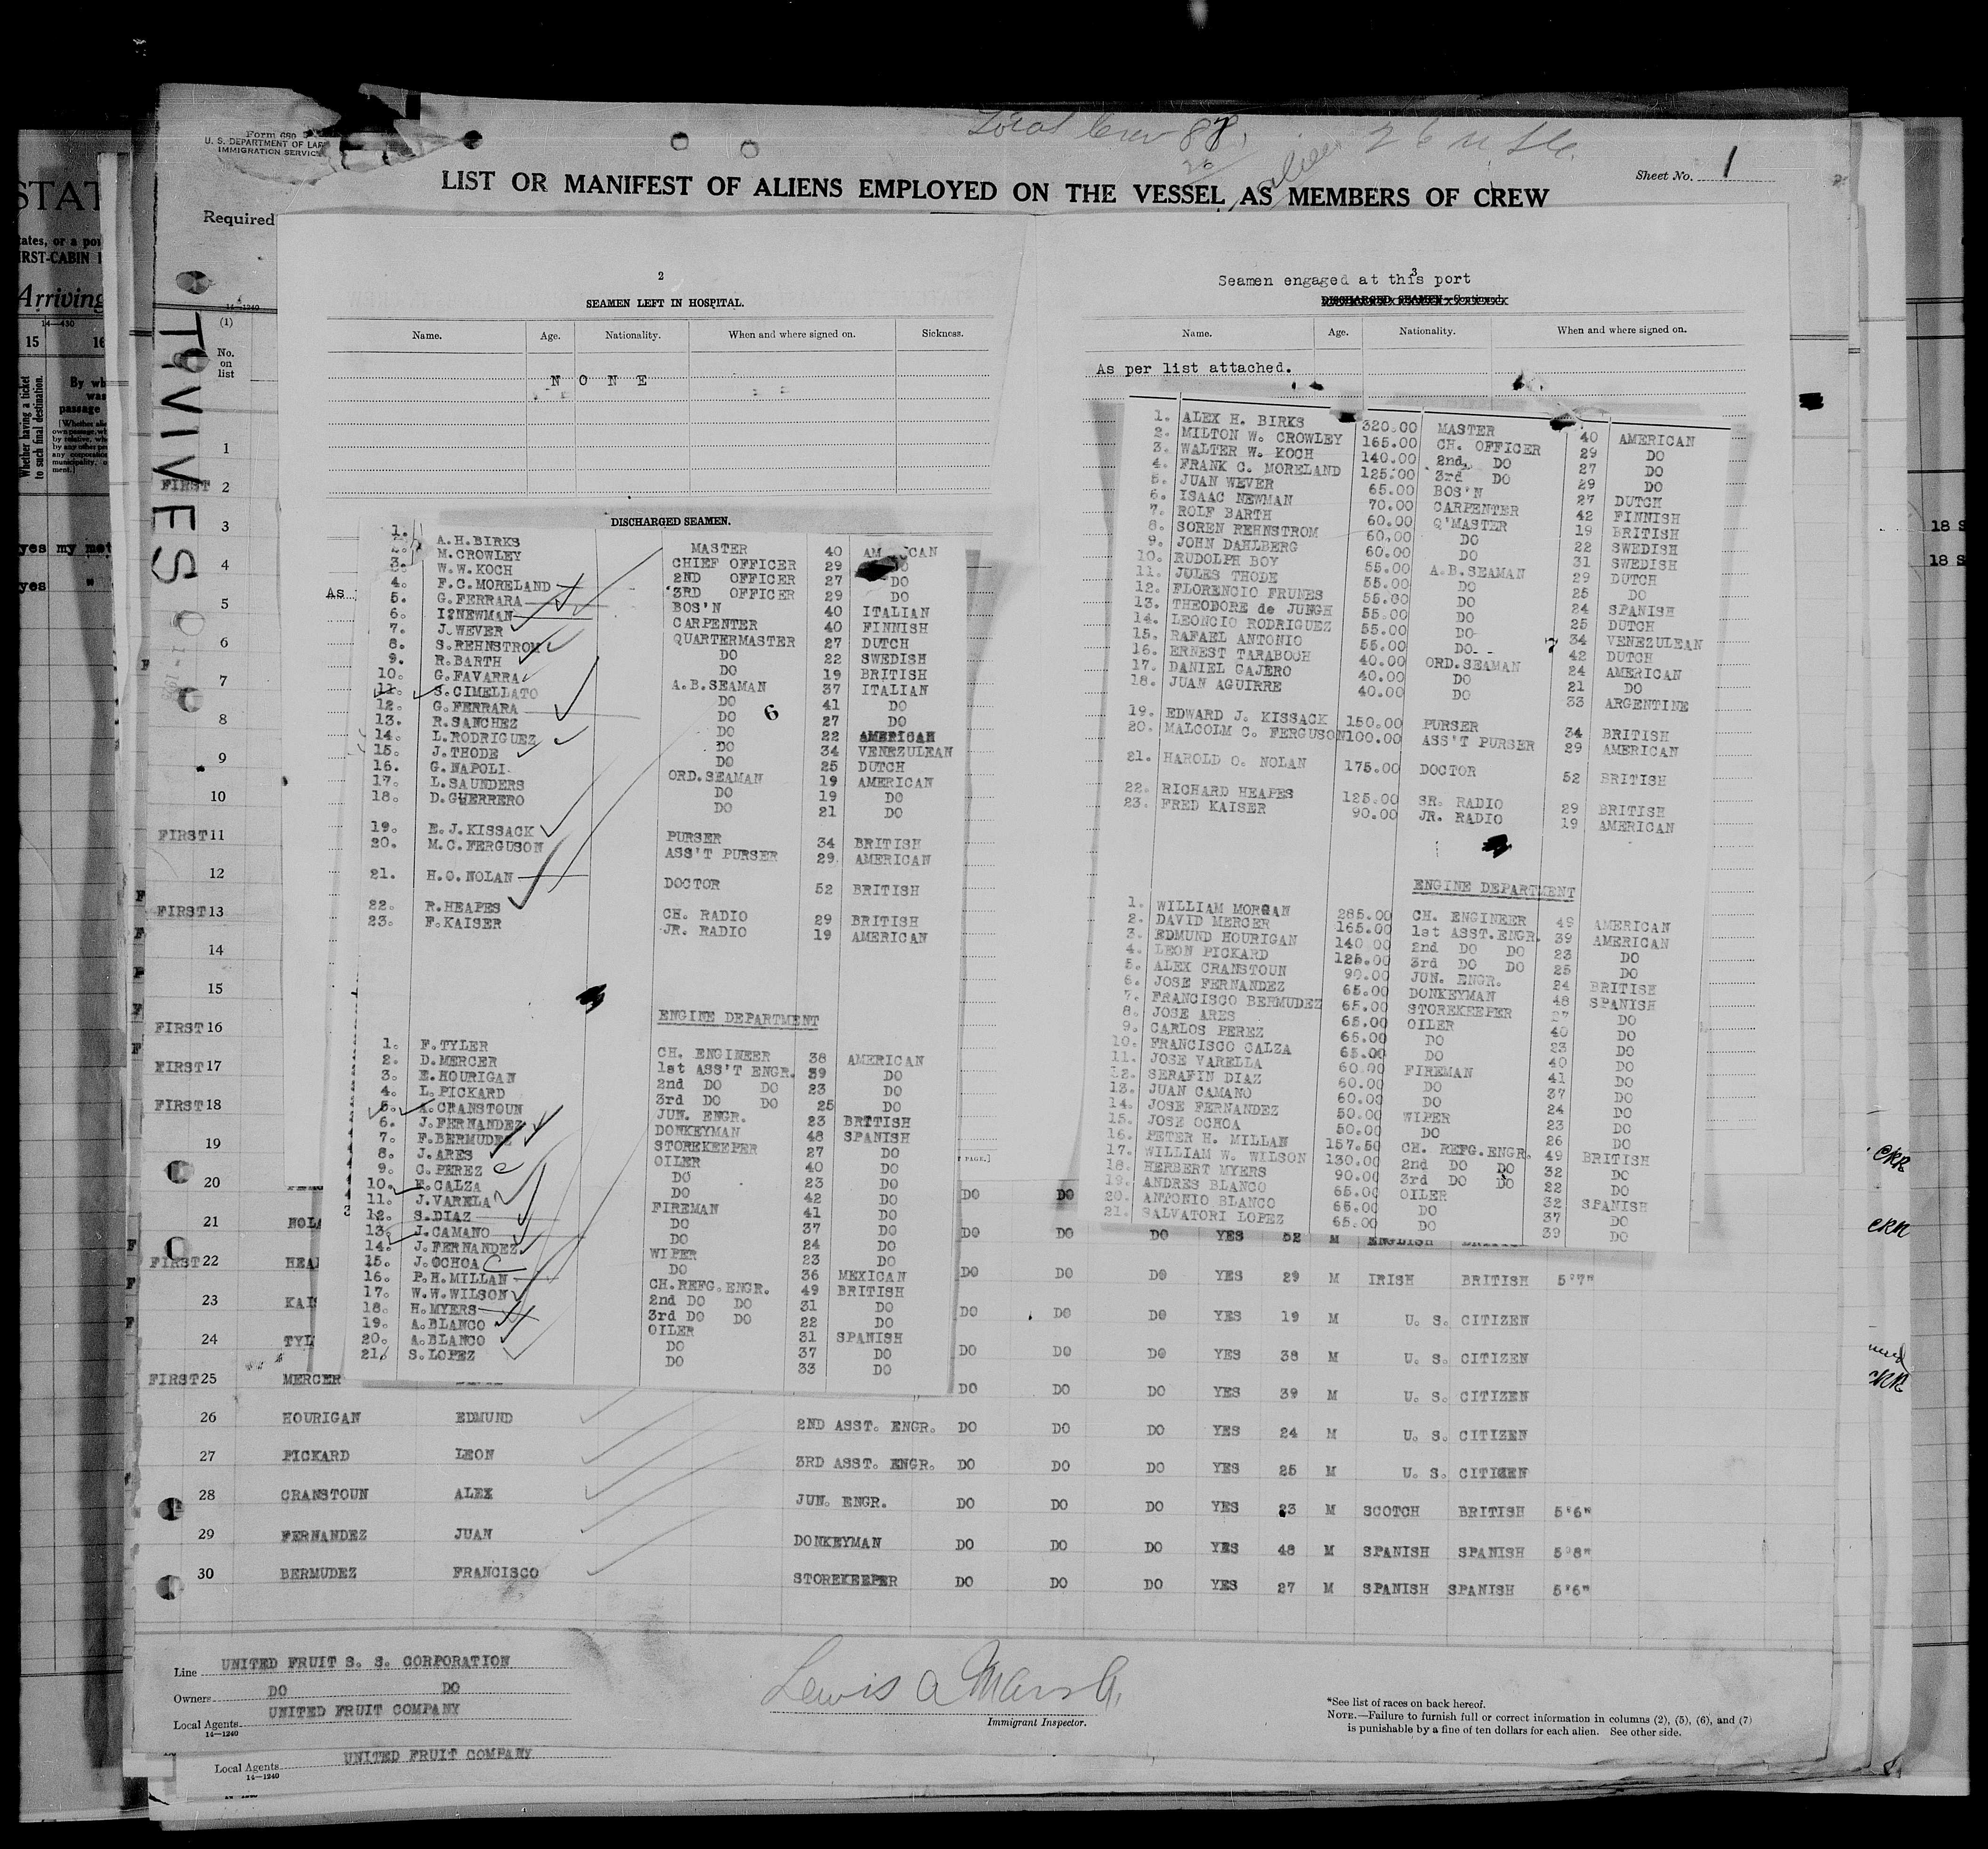 Form 680
U. S. DEPARTMENT OF LAB
IMMIGRATION SERVICE
Local Crew 87.
Sheet No. 1
LIST OR MANIFEST OF ALIENS EMPLOYED ON THE VESSEL AS MEMBERS OF CREW
Required
TIVIVES
14—1240
(1)
No. on list
2
SEAMEN LEFT IN HOSPITAL.
Name. Age. Nationality. When and where signed on. Sickness.
N O N E
DISCHARGED SEAMEN.
1. A.H.BIRKS MASTER 40 AM CAN
2. M.CROWLEY CHIEF OFFICER 29 DO
3. W.W.KOCH 2ND OFFICER 27 DO
4. F.C.MORELAND 3RD OFFICER 29 DO
5. G.FERRARA BOS'N 40 ITALIAN
6. I.NEWMAN CARPENTER 40 FINNISH
7. J.WEVER QUARTERMASTER 27 DUTCH
8. S.REHNSTROM DO 22 SWEDISH
9. R.BARTH DO 19 BRITISH
10. G.FAVARRA A.B.SEAMAN 37 ITALIAN
11. S.CIMELLATO DO 41 DO
12. G.FERRARA DO 6 27 DO
13. R.SANCHEZ DO 22 AMERICAN
14. L.RODRIGUEZ DO 34 VENEZULEAN
15. J.THODE DO 25 DUTCH
16. G.NAPOLI ORD.SEAMAN 19 AMERICAN
17. L.SAUNDERS DO 19 DO
18. D.GUERRERO DO 21 DO
19. E.J.KISSACK PURSER 34 BRITISH
20. M.C.FERGUSON ASS'T PURSER 29 AMERICAN
21. H.O.NOLAN DOCTOR 52 BRITISH
22. R.HEAPES CH. RADIO 29 BRITISH
23. F.KAISER JR. RADIO 19 AMERICAN
ENGINE DEPARTMENT
1. F.TYLER CH. ENGINEER 38 AMERICAN
2. D.MERCER 1st ASS'T ENGR. 39 DO
3. E.HOURIGAN 2nd DO DO 23 DO
4. L.PICKARD 3rd DO DO 25 DO
5. A.CRANSTOUN JUN. ENGR. 23 BRTTISH
6. J.FERNANDEZ DONKEYMAN 48 SPANISH
7. F.BERMUDEZ STOREKEEPER 27 DO
8. J.ARES OILER 40 DO
9. C.PEREZ DO 23 DO
10. F.CALZA DO 42 DO
11. J.VARELA FIREMAN 41 DO
12. S.DIAZ DO 37 DO
13. J.CAMANO DO 24 DO
14. J.FERNANDEZ WIPER 23 DO
15. J.OCHOA DO 36 MEXICAN
16. P.H.MILLAN CH.REFG.ENGR. 49 BRITISH
17. W.W.WILSON 2nd DO DO 31 DO
18. H.MYERS 3rd DO DO 22 DO
19. A.BLANCO OILER 31 SPANISH
20. A.BLANCO DO 37 DO
21. S.LOPEZ DO 33 DO
3
Seamen engaged at this port
DISCHARGED SEAMEN—Continued.
Name. Age. Nationality. When and where signed on.
As per list attached.
1. ALEX H. BIRKS 320.00 MASTER 40 AMERICAN
2. MILTON W. CROWLEY 165.00 CH. OFFICER 29 DO
3. WALTER W. KOCH 140.00 2nd. DO 27 DO
4. FRANK C. MORELAND 125.00 3rd DO 29 DO
5. JUAN WEVER 65.00 BOS'N 27 DUTCH
6. ISAAC NEWMAN 70.00 CARPENTER 42 FINNISH
7. ROLF BARTH 60.00 Q'MASTER 19 BRITISH
8. SOREN REHNSTROM 60.00 DO 22 SWEDISH
9. JOHN DAHLBERG 60.00 DO 31 SWEDISH
10. RUDOLPH BOY 55.00 A.B.SEAMAN 29 DUTCH
11. JULES THODE 55.00 DO 25 DO
12. FLORENCIO FRUNES 55.00 DO 24 SPANISH
13. THEODORE de JUNGH 55.00 DO 25 DUTCH
14. LEONCIO RODRIGUEZ 55.00 DO 34 VENEZULEAN
15. RAFAEL ANTONIO 55.00 DO 42 DUTCH
16. ERNEST TARABOCH 40.00 ORD.SEAMAN 24 AMERICAN
17. DANIEL GAJERO 40.00 DO 21 DO
18. JUAN AGUIRRE 40.00 DO 33 ARGENTINE
19. EDWARD J. KISSACK 150.00 PURSER 34 BRITISH
20. MALCOLM C. FERGUSON 100.00 ASS'T PURSER 29 AMERICAN
21. HAROLD O. NOLAN 175.00 DOCTOR 52 BRITISH
22. RICHARD HEAPES 125.00 SR. RADIO 29 BRITISH
23. FRED KAISER 90.00 JR. RADIO 19 AMERICAN
ENGINE DEPARTMENT
1. WILLIAM MORGAN 285.00 CH. ENGINEER 49 AMERICAN
2. DAVID MERCER 165.00 1st ASST.ENGR. 39 AMERICAN
3. EDMUND HOURIGAN 140.00 2nd DO DO 23 DO
4. LEON PICKARD 125.00 3rd DO DO 25 DO
5. ALEX CRANSTOUN 90.00 JUN. ENGR. 24 BRITISH
6. JOSE FERNANDEZ 65.00 DONKEYMAN 48 SPANISH
7. FRANCISCO BERMUDEZ 65.00 STOREKEEPER 27 DO
8. JOSE ARES 65.00 OILER 40 DO
9. CARLOS PEREZ 65.00 DO 23 DO
10. FRANCISCO CALZA 65.00 DO 40 DO
11. JOSE VARELLA 60.00 FIREMAN 41 DO
12. SERAFIN DIAZ 60.00 DO 37 DO
13. JUAN CAMANO 60.00 DO 24 DO
14. JOSE FERNANDEZ 50.00 WIPER 23 DO
15. JOSE OCHOA 50.00 DO 26 DO
16. PETER H. MILLAN 157.50 CH. REFG.ENGR. 49 BRITISH
17. WILLIAM W. WILSON 130.00 2nd DO DO 32 DO
18. HERBERT MYERS 90.00 3rd DO DO 22 DO
19. ANDRES BLANCO 65.00 OILER 32 SPANISH
20. ANTONIO BLANCO 65.00 DO 37 DO
21. SALVATORI LOPEZ 65.00 DO 39 DO
1
FIRST 2
3
4
As 5
6
7
8
9
10
FIRST 11
12
FIRST 13
14
15
FIRST 16
FIRST 17
FIRST 18
19
20 DO DO
21 NOLA DO DO DO YES 52 M ENGLISH
FIRST 22 HEA DO DO DO YES 29 M IRISH BRITISH 5'7"
23 KAI DO DO DO YES 19 M U. S. CITIZEN
24 TYL DO DO DO YES 38 M U. S. CITIZEN
FIRST 25 MERCER DO DO DO YES 39 M U. S. CITIZEN
26 HOURIGAN EDMUND 2ND ASST. ENGR. DO DO DO YES 24 M U. S. CITIZEN
27 PICKARD LEON 3RD ASST. ENGR. DO DO DO YES 25 M U. S. CITIZEN
28 CRANSTOUN ALEX JUN. ENGR. DO DO DO YES 23 M SCOTCH BRITISH 5'6"
29 FERNANDEZ JUAN DONKEYMAN DO DO DO YES 48 M SPANISH SPANISH 5'8"
30 BERMUDEZ FRANCISCO STOREKEEPER DO DO DO YES 27 M SPANISH SPANISH 5'6"
Line UNITED FRUIT S. S. CORPORATION
Owners DO DO
Local Agents UNITED FRUIT COMPANY
14—1240
Lewis A Marsh.
Immigrant Inspector.
*See list of races on back hereof.
NOTE.—Failure to furnish full or correct information in columns (2), (5), (6), and (7)
is punishable by a fine of ten dollars for each alien. See other side.
Local Agents UNITED FRUIT COMPANY
14—1240